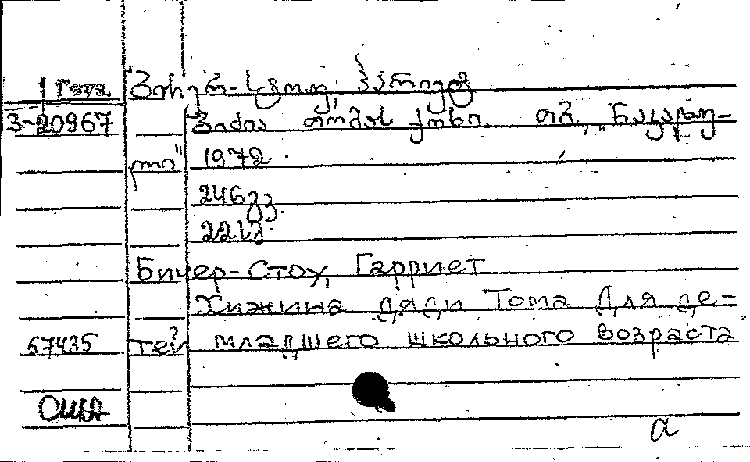 ბიჩერ-სტოუ, ჰარიეტ
3-20967 ბიძია თომას ქოხი. თბ. „ნაკადუ-
ლი" 1972.
246 გვ.
Бичер-Стоу, Гарриет
Хижина дяди Тома Для де-
57435 тей младшего школьного возраста
США
a